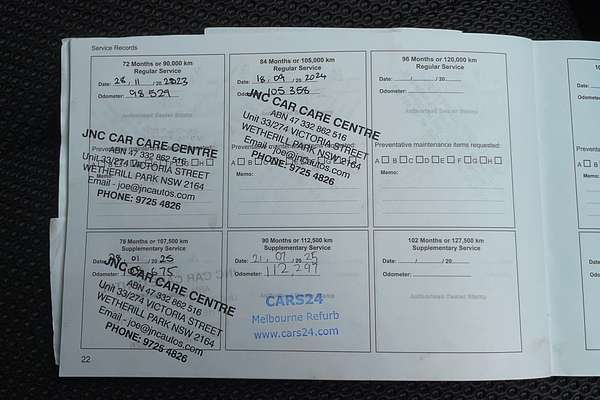 Service Records
72 Months or 90,000 km
Regular Service
Date: 28 / 11 / 20 2023
Odometer: 98 529
JNC CAR CARE CENTRE
ABN 47 332 862 516
Unit 33/274 VICTORIA STREET
WETHERILL PARK NSW 2164
Email - joe@jncautos.com
PHONE: 9725 4826
84 Months or 105,000 km
Regular Service
Date: 18 / 09 / 20 2024
Odometer: 105 358
JNC CAR CARE CENTRE
ABN 47 332 862 516
Unit 33/274 VICTORIA STREET
WETHERILL PARK NSW 2164
Email - joe@jncautos.com
PHONE: 9725 4826
A B C D E F G H
Memo:
96 Months or 120,000 km
Regular Service
Date: / / 20
Odometer:
Authorised Dealer Stamp
Preventative maintenance items requested:
A B C D E F G H
Memo:
78 Months or 107,500 km
Supplementary Service
01 / 20 25
JNC CAR CARE CENTRE
ABN 47 332 862 516
Unit 33/274 VICTORIA STREET
WETHERILL PARK NSW 2164
Email - joe@jncautos.com
PHONE: 9725 4826
90 Months or 112,500 km
Supplementary Service
Date: 21 / 07 / 20 25
Odometer: 112,297
CARS24
Melbourne Refurb
www.cars24.com
102 Months or 127,500 km
Supplementary Service
Date: / / 20
Odometer:
Authorised Dealer Stamp
22